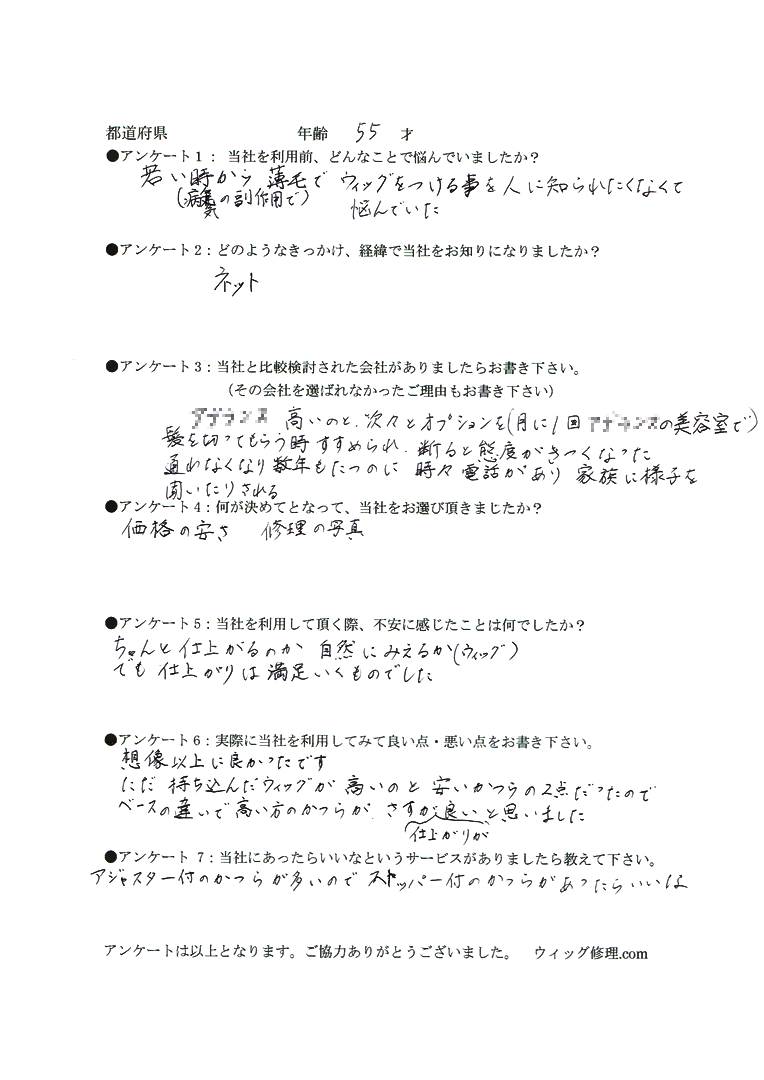 都道府県 年齢 55 才
●アンケート1： 当社を利用前、どんなことで悩んでいましたか？
若い時から 薄毛で ウィッグをつける事を人に知られたくなくて
(病気の副作用で) 悩んでいた
●アンケート2：どのようなきっかけ、経緯で当社をお知りになりましたか？
ネット
●アンケート3：当社と比較検討された会社がありましたらお書き下さい。
（その会社を選ばれなかったご理由もお書き下さい）
高いのと、次々とオプションを(月に1回 の美容室で)
髪を切ってもらう時すすめられ、断ると態度がきつくなった
通わなくなり数年もたつのに 時々電話があり 家族に様子を
聞いたりされる
●アンケート4：何が決めてとなって、当社をお選び頂きましたか？
価格の安さ 修理の写真
●アンケート5：当社を利用して頂く際、不安に感じたことは何でしたか？
ちゃんと仕上がるのか 自然にみえるか(ウィッグ)
でも 仕上がりは満足いくものでした
●アンケート6：実際に当社を利用してみて良い点・悪い点をお書き下さい。
想像以上に良かったです
ただ 持ち込んだウィッグが 高いのと 安いかつらの2点だったので
ベースの違いで高い方のかつらが、さすが良いと思いました
仕上がりが
●アンケート 7：当社にあったらいいなというサービスがありましたら教えて下さい。
アジャスター付のかつらが多いので ストッパー付のかつらがあったらいいな
アンケートは以上となります。ご協力ありがとうございました。 ウィッグ修理.com